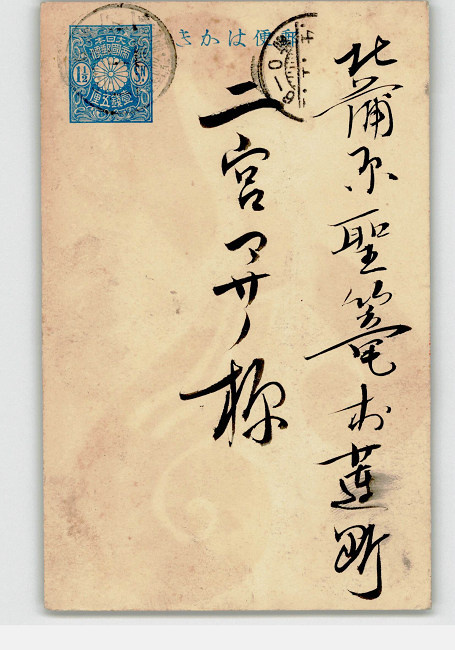 郵便はかき
大日本
帝國郵便
1½ Sn
壹錢五厘
北蒲原聖篭村蓮野
二宮マサノ様